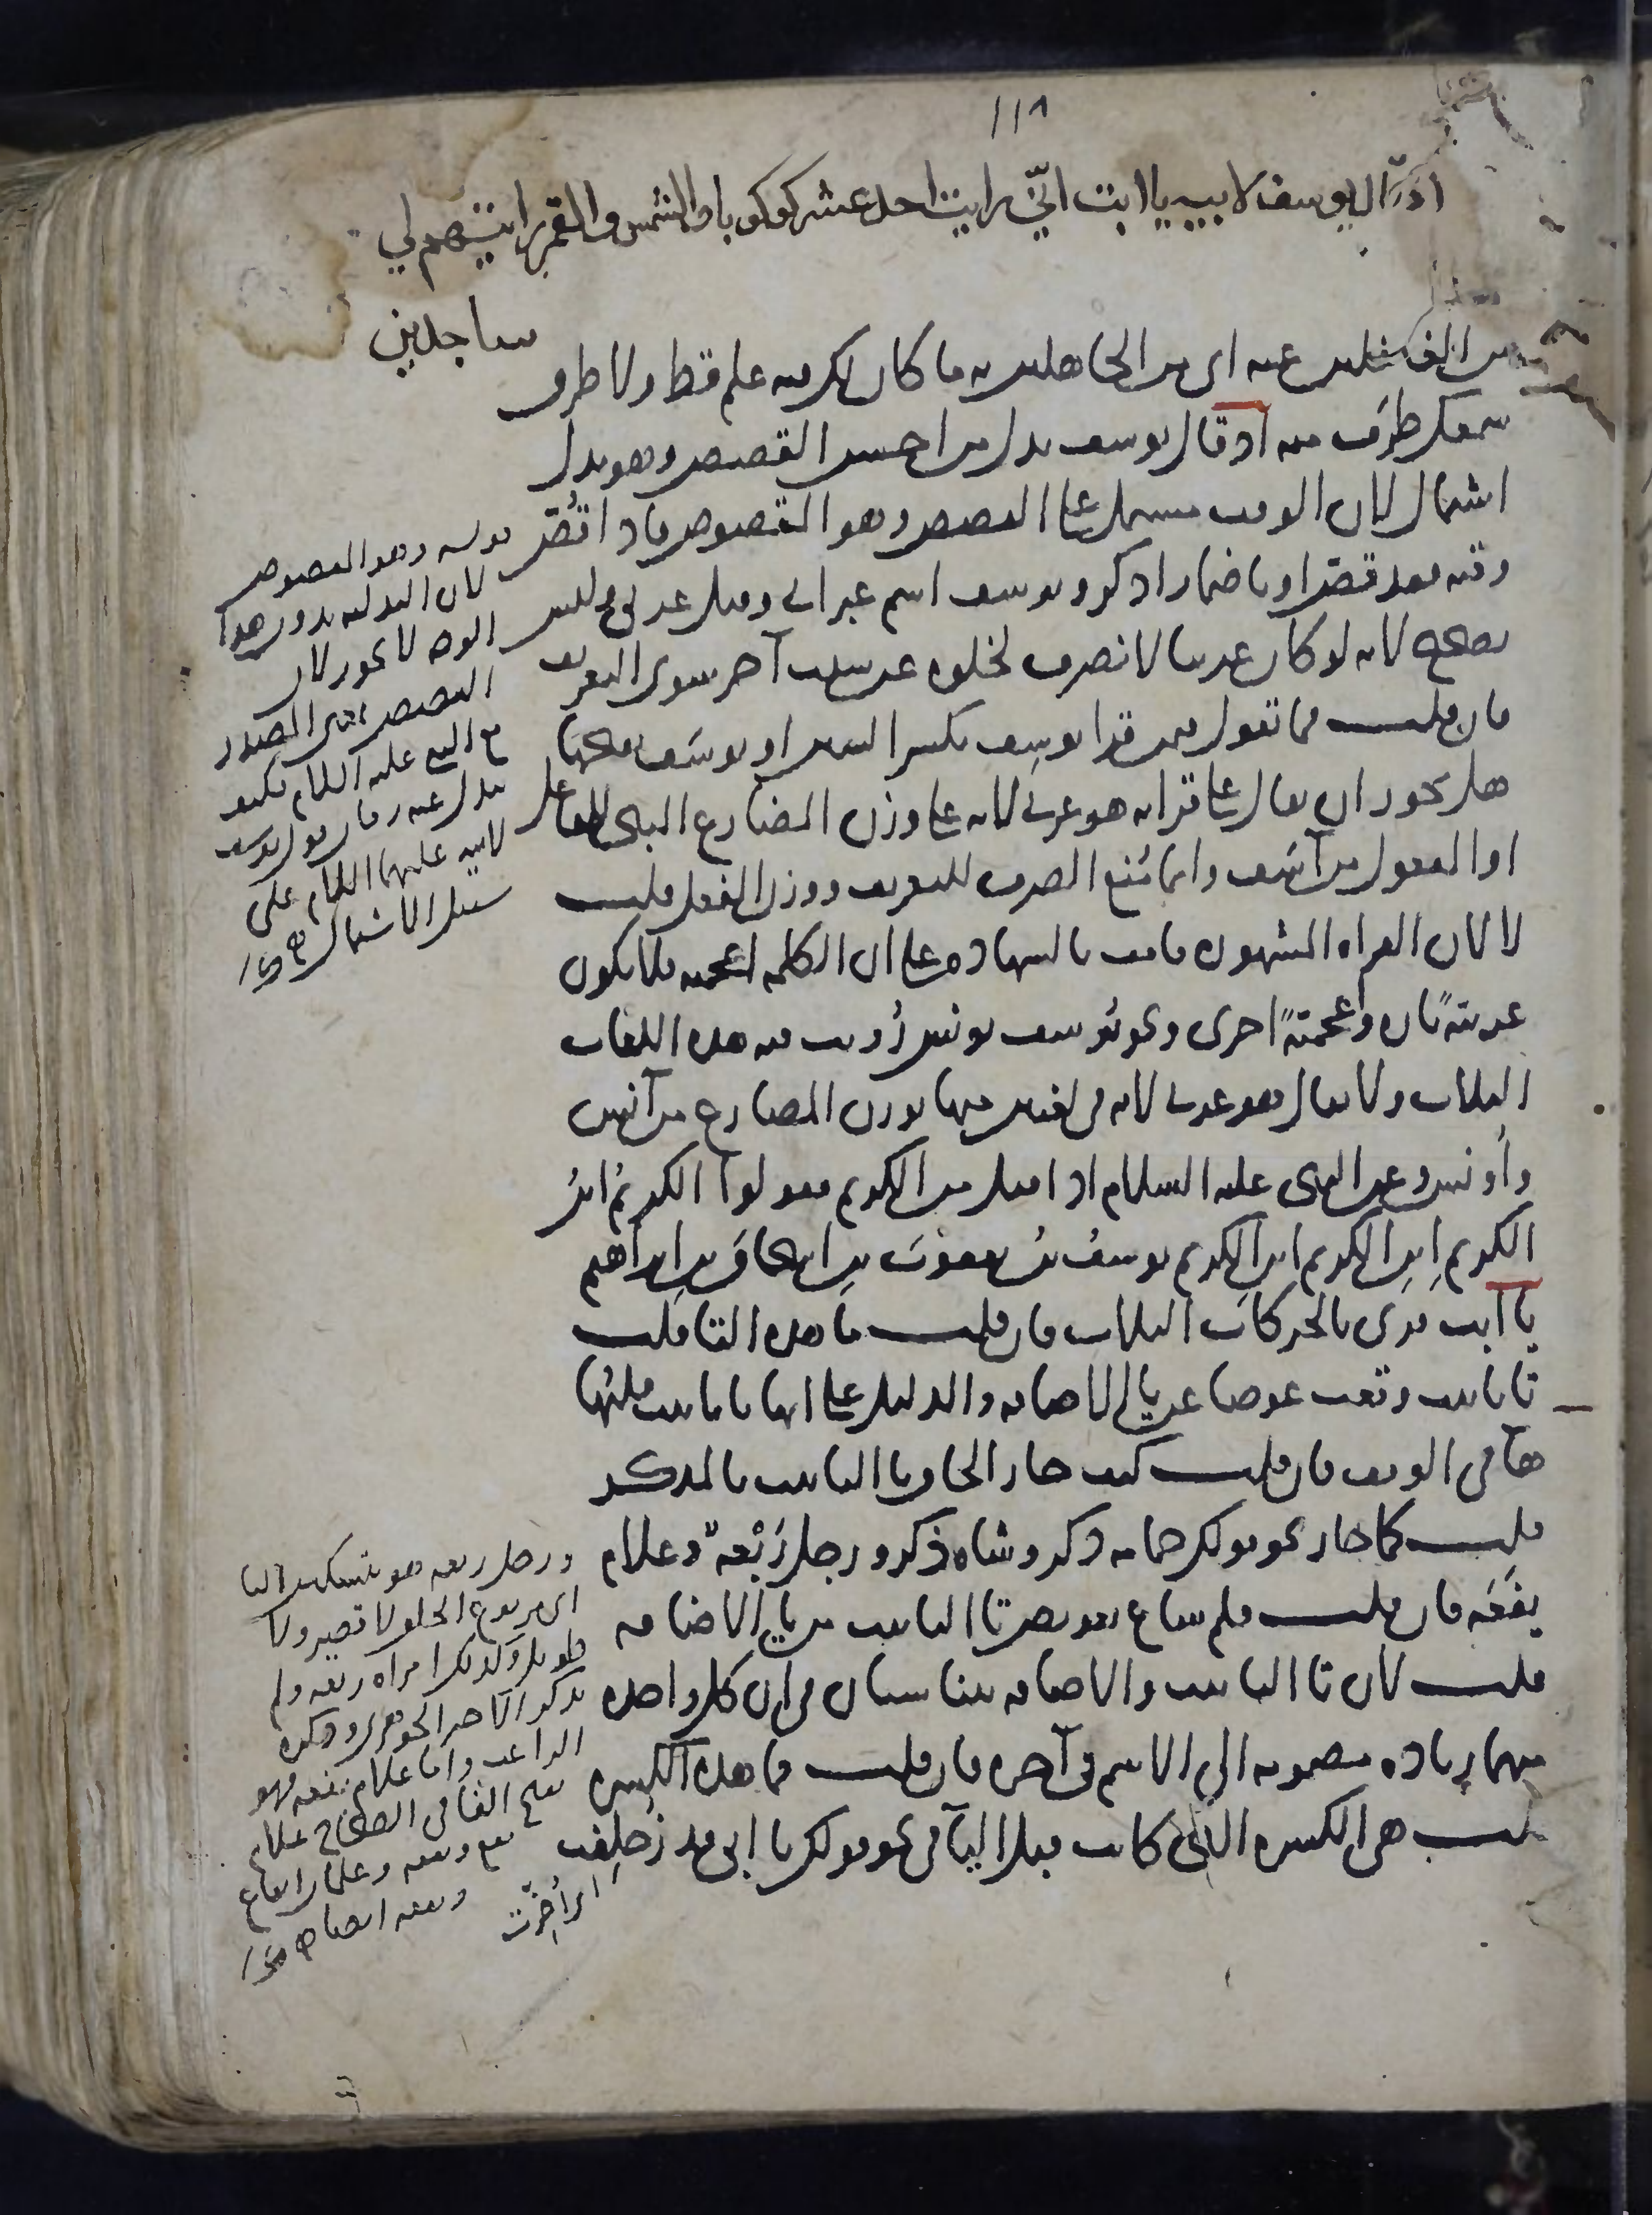 ١١٨
اذ قال يوسف لابيه يا ابت اني رايت احد عشر كوكبا والشمس والقمر رايتهم لي
ساجدين
من الغافلين عنه اى من الجاهلين به ما كان لك فيه علم قط ولا طرق
سمعك طرف منه اذ قال يوسف بدل من احسن القصص وهو بدل
اشتمال لان الوقت مشتمل على القصص وهو المقصوص فاذا قُصّ
وقته فقد قصّ او باضمار اذكر ويوسف اسم عبراني وقيل عربي وليس
بصحيح لانه لو كان عربيا لانصرف لخلوه عن سبب آخر سوى التعريف
فان قلت فما تقول فيمن قرا يوسِف بكسر السين او يوسَف بفتحها
هل يجوز ان يقال على قراته هو عربي لانه على وزن المضارع المبنى للفاعل
او المفعول من آسَف وانما مُنع الصرف للتعريف ووزن الفعل قلت
لا لان القراه المشهوره قامت بالشهاده على ان الكلمه اعجميه فلا يكون
عربيّةً تاره واعجميّةً اخرى ونحو يُوسف يونس رُويت فيه هذه اللغات
الثلاث ولا يقال هو عربي لانه فى لغتين منها بوزن المضارع من آنس
وأونس وعن النبى عليه السلام اذا قيل من الكريم فقولوا الكريمُ ابنُ
الكريم ابنِ الكريم ابن الكريم يوسفُ بنُ يعقوبَ بن اسحاقَ بن ابراهيم
يا ابت قرى بالحركات الثلاث فان قلت ما هذه التا قلت
تا تانيث وقعت عوضا عن يا الاضافه والدليل على انها تا تانيث قلبُها
هآ فى الوقف فان قلت كيف جاز الحاق تا التانيث بالمذكر
قلت كما جاز نحو قولك حمامه ذكر وشاه ذكر ورجل رَبْعةٌ وغلام
يفَعَه فان قلت فلم ساغ تعويض تا التانيث من يا الاضافه
قلت لان تا التانيث والاضافه يتناسبان فى ان كل واحده
منهما زياده مضمومه الى الاسم فى آخره فان قلت فما هذه الكسره
قلت هى الكسره التى كانت قبل اليآ فى نحو قولك يا ابى قد زُحلِفت
اى أُخّرت
قوله وهو المقصوص
لان البدليه بدون هذا
الوجه لا يجوز لان
القصص بمعنى المصدر
بدل عنه وقال قول يوسف
لابيه عليهما السلام على
سبيل الاشتمال
ورجل ربعه هو بتسكين البا
اى مربوع الخلق لا قصير ولا
طويل وكذلك امراه ربعه ولم
يذكر الآخر الجوهرى وذكره
الراغب واما غلام يفعه فهو
بفتح الفا فى الصحاح غلام
يفع ويفعه وغلمان ايفاع
ويفعه ايضا